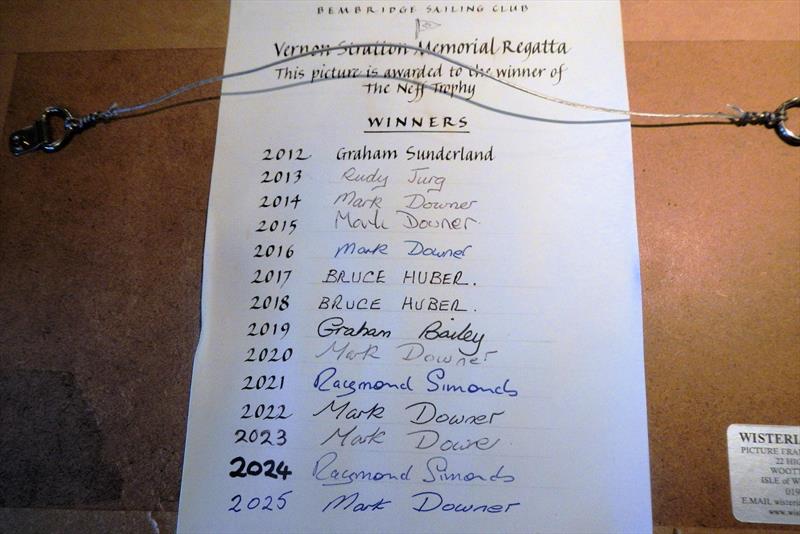 BEMBRIDGE SAILING CLUB
Vernon Stratton Memorial Regatta
This picture is awarded to the winner of
The Neff Trophy
WINNERS
2012 Graham Sunderland
2013 Rudy Jurg
2014 Mark Downer
2015 Mark Downer
2016 Mark Downer
2017 BRUCE HUBER.
2018 BRUCE HUBER.
2019 Graham Bailey
2020 Mark Downer
2021 Raymond Simonds
2022 Mark Downer
2023 Mark Downe
2024 Raymond Simonds
2025 Mark Downer
WISTERI
PICTURE FRA
22 HI
WOOTT
ISLE OF W
019
E.MAIL wisteri
www.wis